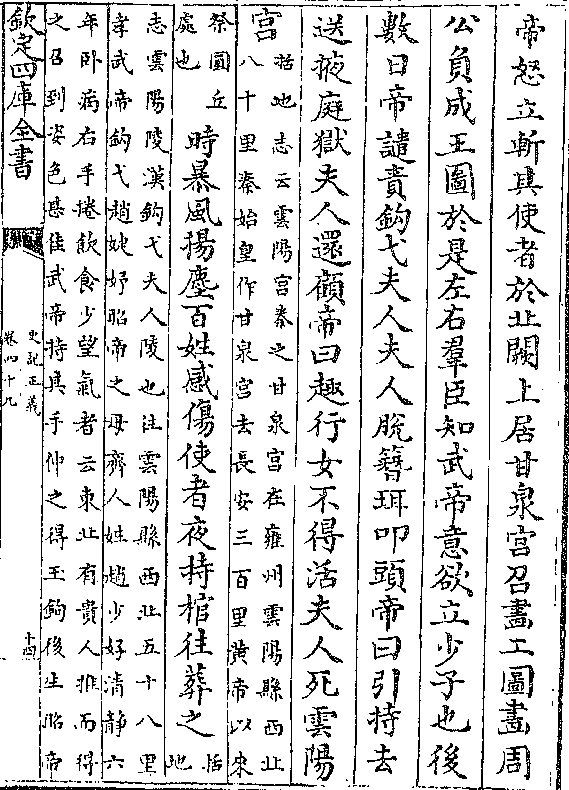 帝怒立斬其使者於北闕上居甘泉宮召畫工圖畫周
公負成王圖於是左右羣臣知武帝意欲立少子也後
數日帝譴責鈎弋夫人夫人脫簪珥叩頭帝曰引持去
送掖庭獄夫人還顧帝曰趣行女不得活夫人死雲陽
宮
括地志云雲陽宮秦之甘泉宮在雍州雲陽縣西北
八十里秦始皇作甘泉宮去長安三百里黄帝以來
祭圜丘
處也
時暴風揚塵百姓感傷使者夜持棺往葬之
括
地
志雲陽陵漢鈎弋夫人陵也在雲陽縣西北五十八里
孝武帝鈎弋趙婕妤昭帝之母齊人姓趙少好清静六
年卧病右手捲飲食少望氣者云東北有貴人推而得
之召到姿色甚佳武帝持其手伸之得玉鉤後生昭帝
欽定四庫全書
史記正義
卷四十九
十四